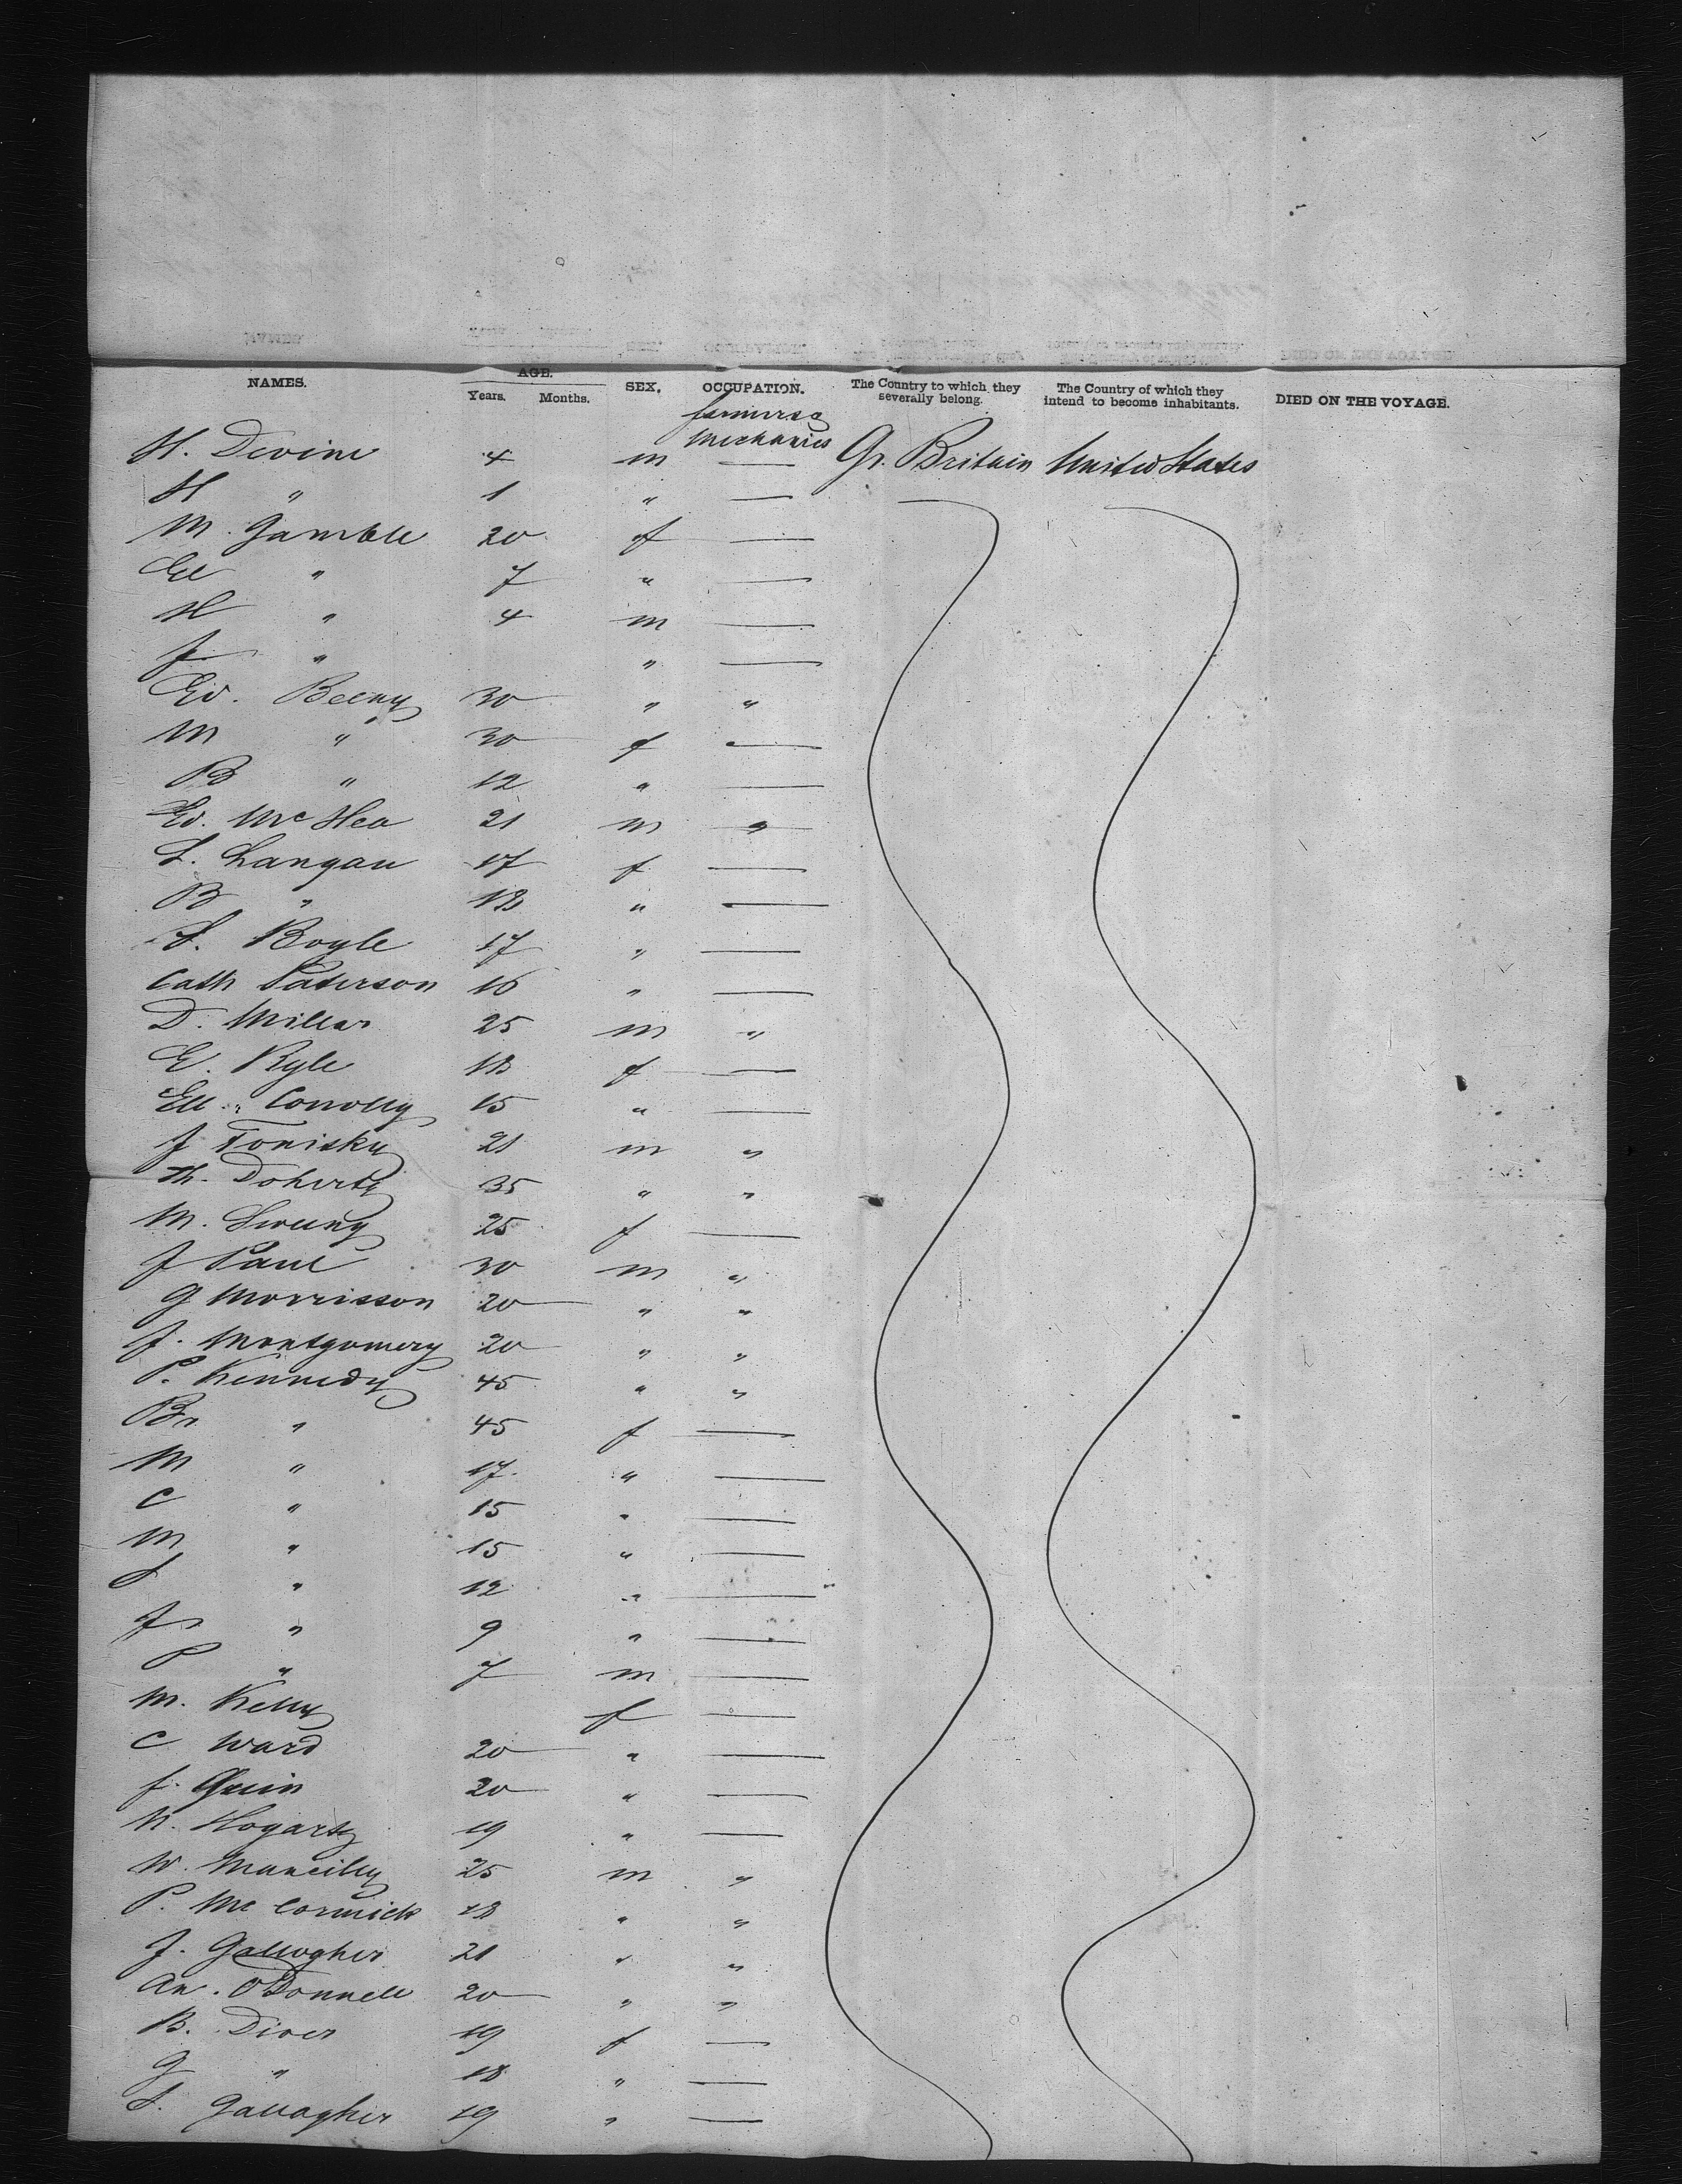 NAMES. AGE. Years. Months. SEX. OCCUPATION. The Country to which they severally belong. The Country of which they intend to become inhabitants. DIED ON THE VOYAGE.
farmers &
mechanics
H. Devine 4 m — Gr. Britain United States
H " 1 " —
M. Gamble 20 f —
Ell " 7 " —
H " 4 m —
J " " —
Ed. Beeny 30 " "
M " 30 f —
B " 12 " —
Ed. McHea 21 m "
L. Langan 17 f —
B " 18 " —
S. Boyle 17 " —
Cath Paterson 16 " —
D. Millar 25 m "
E. Kyle 18 f —
Ell. Conolly 15 " —
J Tonisky 21 m "
Th. Doherty 35 " "
M. Sweeny 25 f —
J Paul 30 m "
G Morrisson 20 " "
J. Montgomery 20 " "
P. Kennedy 45 " "
Br " 45 f —
M " 17 " —
C " 15 " —
M " 15 " —
S " 12 " —
Jr " 9 " —
P " 7 m —
M. Kelly f —
C Ward 20 " —
J. Quin 20 " —
N. Hogarty 19 " —
W. 25 m "
P. McCormick 18 " "
J. Gallogher 21 " "
An. O'Donnell 20 " "
B. Diver 19 f —
G " 18 " —
S. Gallagher 19 " —